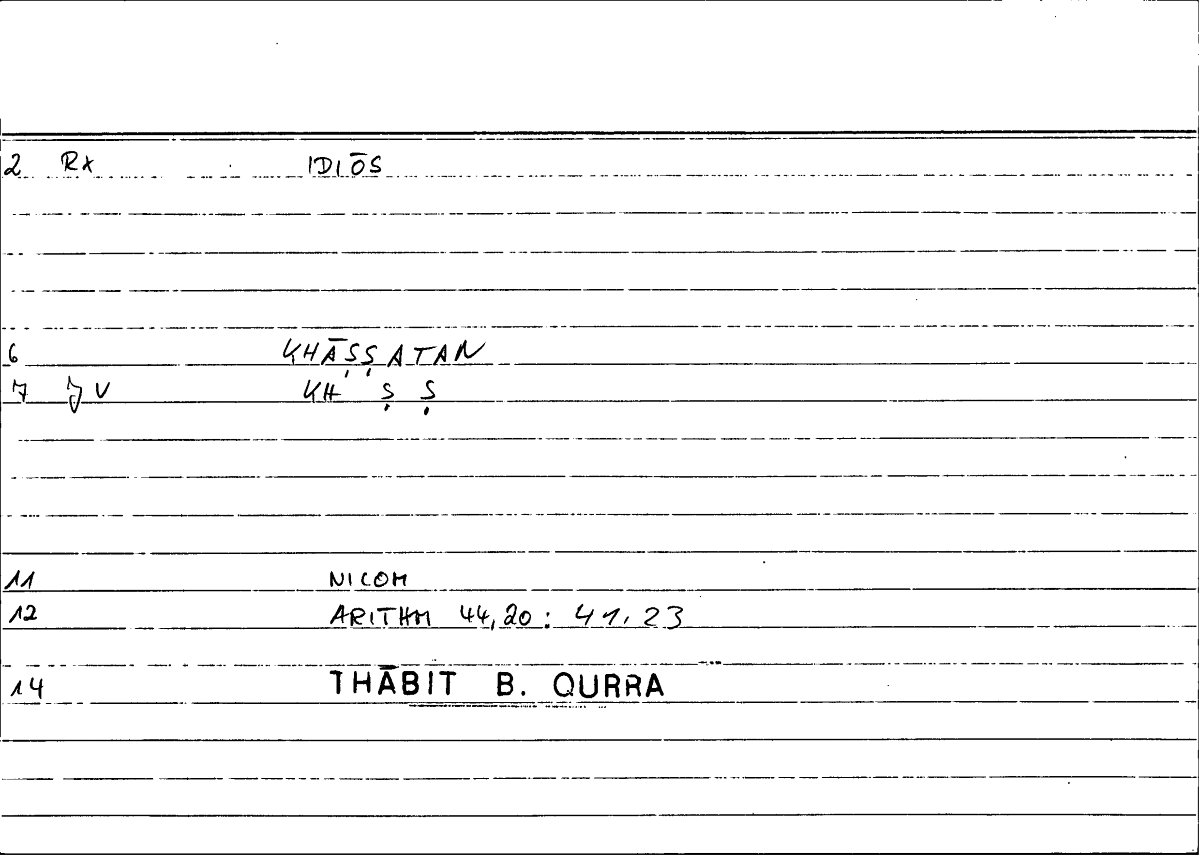 2 RX IDIŌS
6 KHĀṢṢATAN
7 KH Ṣ Ṣ
11 NICOM
12 ARITHM 44,20: 41,23
14 THĀBIT B. QURRA